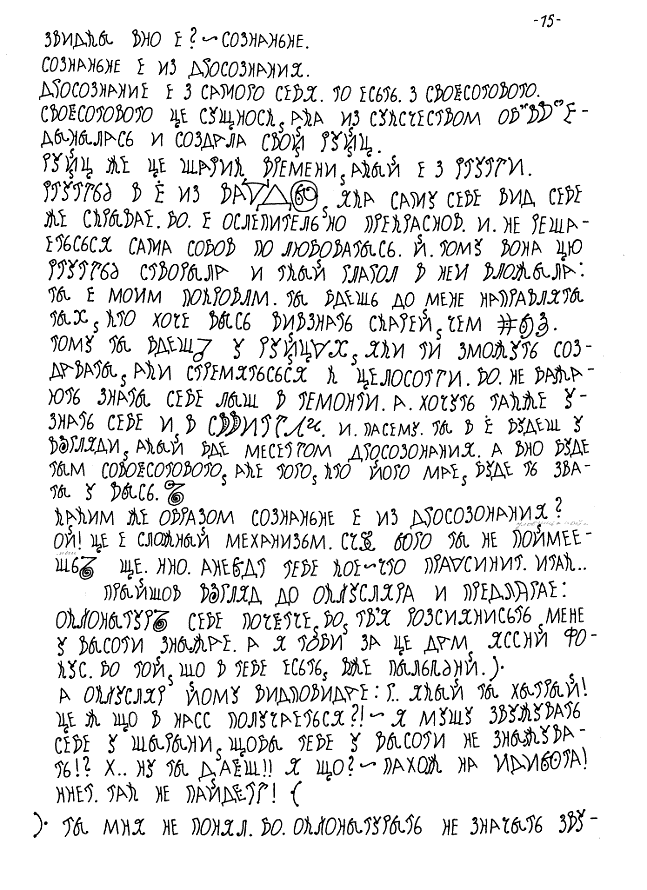 -15-
ЗВИДКЫ ВНО Е? ~ СОЗНАНЬНЕ.
СОЗНАНЬНЕ Е ИЗ ДРОСОЗНАНИЯ.
ДРОСОЗНАНИЕ Е З САМОГО СЕБЯ. ТО ЕСЬТЬ. З СВОЁСОТОВОГО.
СВОЁСОТОВОГО ЦЕ СУЩНОСЬ, АКА ИЗ СУКСЧЕСТВОМ ОБ"ВД"Е-
ДЫНЫЛАСЬ И СОЗДАЛА СВОЙ РУЙЦ.
РУЙЦ ЖЕ ЦЕ ШАРИК ВРЕМЕНИ, АКЫЙ Е З РТУТТИ.
РТУТТЬ В Ё ИЗ ВА , ЯКА САМУ СЕБЕ ВИД СЕБЕ
ЖЕ СКРЫВАЕ. БО. Е ОСЛЕПИТЕЛЬНО ПРЕКРАСНОВ. И. НЕ РЕША-
ЕТЬСЬСЯ САМА СОБОВ ПОЛЮБОВАТЫСЬ. Й. ТОМУ ВОНА ЦЮ
РТУТТЬ СТВОРЫЛА И ТКЫЙ ГЛАГОЛ В НЕИ ВЛОЖЫЛА:
ТЫ Е МОИМ ПОКРОВЛМ. ТЫ ВДЕШЬ ДО МЕНЕ НАПРАВЛЯТЫ
ТЫХ, КТО ХОЧЕ ВЫСЬ ВИВЗНАТЬ СКАРЕЙ, ЧЕМ
ТОМУ ТЫ ВДЕШ У РУЙЦАХ, ЯКИ ТИ ЗМОЖУТЬ СОЗ-
ДАВАТЫ, АКИ СТРЕМЯТЬСЬСЯ К ЦЕЛОСОТТИ. БО. НЕ БАЖА-
ЮТЬ ЗНАТЫ СЕБЕ ЛЫШ В ТЕМОНТИ. А. ХОЧУТЬ ТАКЖЕ У-
ЗНАТЬ СЕБЕ И В . И. ПАСЕМУ. ТЫ В Ё БУДЕШ У
ВЗГЛЯДИ, АКЫЙ БДЕ МЕСЕТТОМ ДРОСОЗОНАНИЯ. А ВНО БУДЕ
ТЫМ СОВОЁСОТОВОГО, АКЕ ТОГО, КТО ЙОГО МАЕ, БУДЕ ТЬ ЗВА-
ТЫ У ВЫСЬ.
КАКИМ ЖЕ ОБРАЗОМ СОЗНАНЬНЕ Е ИЗ ДРОСОЗОНАНИЯ?
ОЙ! ЦЕ Е СЛОЖНЫЙ МЕХАНИЗЬМ. БОГО ТЫ НЕ ПОЙМЕЕ-
ШЬ ЩЕ. ННО. АНЕ ТЕБЕ КОЕ-ЧТО ПРАСИНИТ. ИТАК..
ПРЫЙШОВ ВЗГЛЯД ДО ОКЛУСЛЯРА И ПРЕДЛАГАЕ:
ОКЛОНЫТУР СЕБЕ ПОЧЕТЧЕ, БО, ТВЯ РОЗСИЯНИСЬТЬ, МЕНЕ
У ВЫСОТИ ЗНЫЖАЕ. А Я ТОБИ ЗА ЦЕ ДАМ, ЯССНИЙ ФО-
КУС. БО ТОЙ, ЩО В ТЕБЕ ЕСЬТЬ, ВЖЕ ПЫЛЬЛЬНИЙ. ).
А ОКЛУСЛЯР ЙОМУ ВИДПОВИДАЕ: Г. ЯКЫЙ ТЫ ХЫТРЫЙ!
ЦЕ Ж ЩО В НАСС ПОЛУЧАЕТЬСЯ?! ~ Я МУШУ ЗВУЖУВАТЬ
СЕБЕ У ШЫРЫНИ, ЩОБЫ ТЕБЕ У ВЫСОТИ НЕ ЗНЫЖУВА-
ТЬ!? Х.. НУ ТЫ ДАЕШ!! Я ЩО? ~ ПАХОЖ НА ИДИЬОТА!
ННЕТ. ТАК НЕ ПАЙДЕТТ! (
). ТЫ МНЯ НЕ ПОНЯЛ. БО. ОКЛОНЫТУРЫТЬ НЕ ЗНАЧЫТЬ ЗВУ-